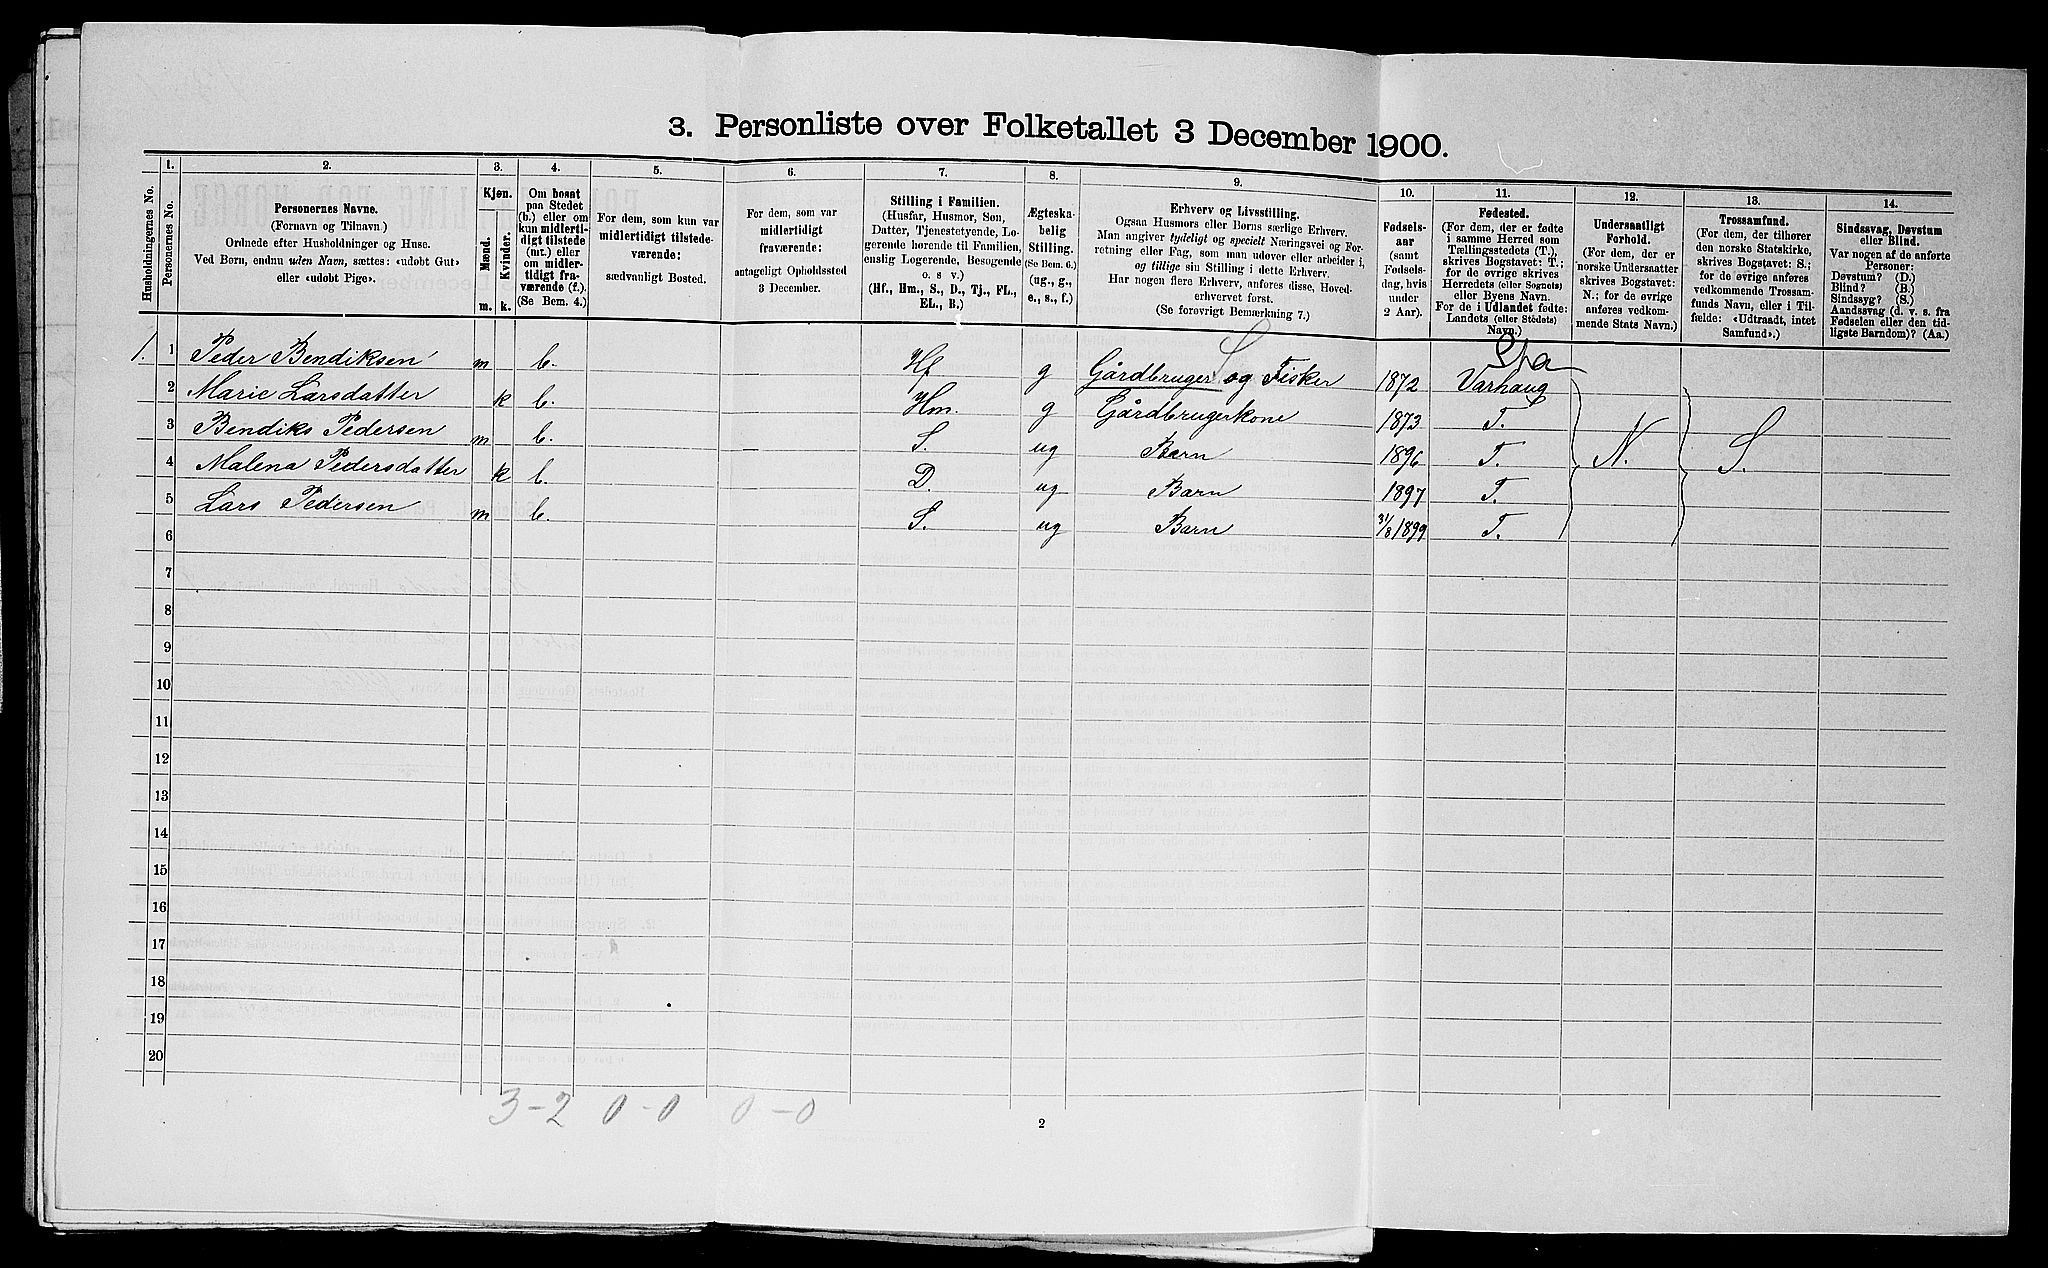 3. Personliste over Folketallet 3 December 1900.
1. 2. 3. 4. 5. 6. 7. 8. 9. 10. 11. 12. 13. 14.
Husholdningernes No.
Personernes No.
Personernes Navne.
(Fornavn og Tilnavn.)
Ordnede efter Husholdninger og Huse.
Ved Børn, endnu uden Navn, sættes: «udøbt Gut»
eller «udøbt Pige».
Kjøn.
Mænd.
Kvinder.
m. k.
Om bosat
paa Stedet
(b.) eller om
kun midler-
tidigt tilstede
(mt.) eller
om midler-
tidigt fra-
værende (f.).
(Se Bem. 4.)
For dem, som kun var
midlertidigt tilstede-
værende:
sædvanligt Bosted.
For dem, som var
midlertidigt
fraværende:
antageligt Opholdssted
3 December.
Stilling i Familien.
(Husfar, Husmor, Søn,
Datter, Tjenestetyende, Lo-
gerende hørende til Familien,
enslig Logerende, Besøgende
o. s. v.)
(Hf., Hm., S., D., Tj., FL.,
EL., B.)
Ægteska-
belig
Stilling.
(Se Bem. 6.)
(ug., g.,
e., s., f.)
Erhverv og Livsstilling.
Ogsaa Husmors eller Børns særlige Erhverv.
Man angiver tydeligt og specielt Næringsvei og For-
retning eller Fag, som man udover eller arbeider i,
og tillige sin Stilling i dette Erhverv.
Har nogen flere Erhverv, anføres disse, Hoved-
erhvervet først.
(Se forøvrigt Bemærkning 7.)
Fødsels-
aar
(samt
Fødsels-
dag, hvis
under
2 Aar).
Fødested.
(For dem, der er fødte
i samme Herred som
Tællingsstedets (T.),
skrives Bogstavet: T.;
for de øvrige skrives
Herredets (eller Sognets)
eller Byens Navn.
For de i Udlandet fødte:
Landets (eller Stedets)
Navn.)
Undersaatligt
Forhold.
(For dem, der er
norske Undersaatter
skrives Bogstavet:
N.; for de øvrige
anføres vedkom-
mende Stats Navn.)
Trossamfund.
(For dem, der tilhører
den norske Statskirke,
skrives Bogstavet: S.;
for de øvrige anføres
vedkommende Trossam-
funds Navn, eller i Til-
fælde: «Udtraadt, intet
Samfund».)
Sindssvag, Døvstum
eller Blind.
Var nogen af de anførte
Personer:
Døvstum? (D.)
Blind? (B.)
Sindssyg? (S.)
Aandssvag (d. v. s. fra
Fødselen eller den tid-
ligste Barndom)? (Aa.)
1. 1 Peder Bendiksen m b. Hf g Gårdbruger og Fisker 1872 Varhaug
2 Marie Larsdatter k b. Hm. g Gårdbrugerkone 1873 T.
3 Bendiks Pedersen m b. S. ug Barn 1896 T. N. S.
4 Malena Pedersdatter k b. D. ug Barn 1897 T.
5 Lars Pedersen m b. S. ug Barn 31/8 1899 T.
6
7
8
9
10
11
12
13
14
15
16
17
18
19
20
3-2 0-0 0-0
2